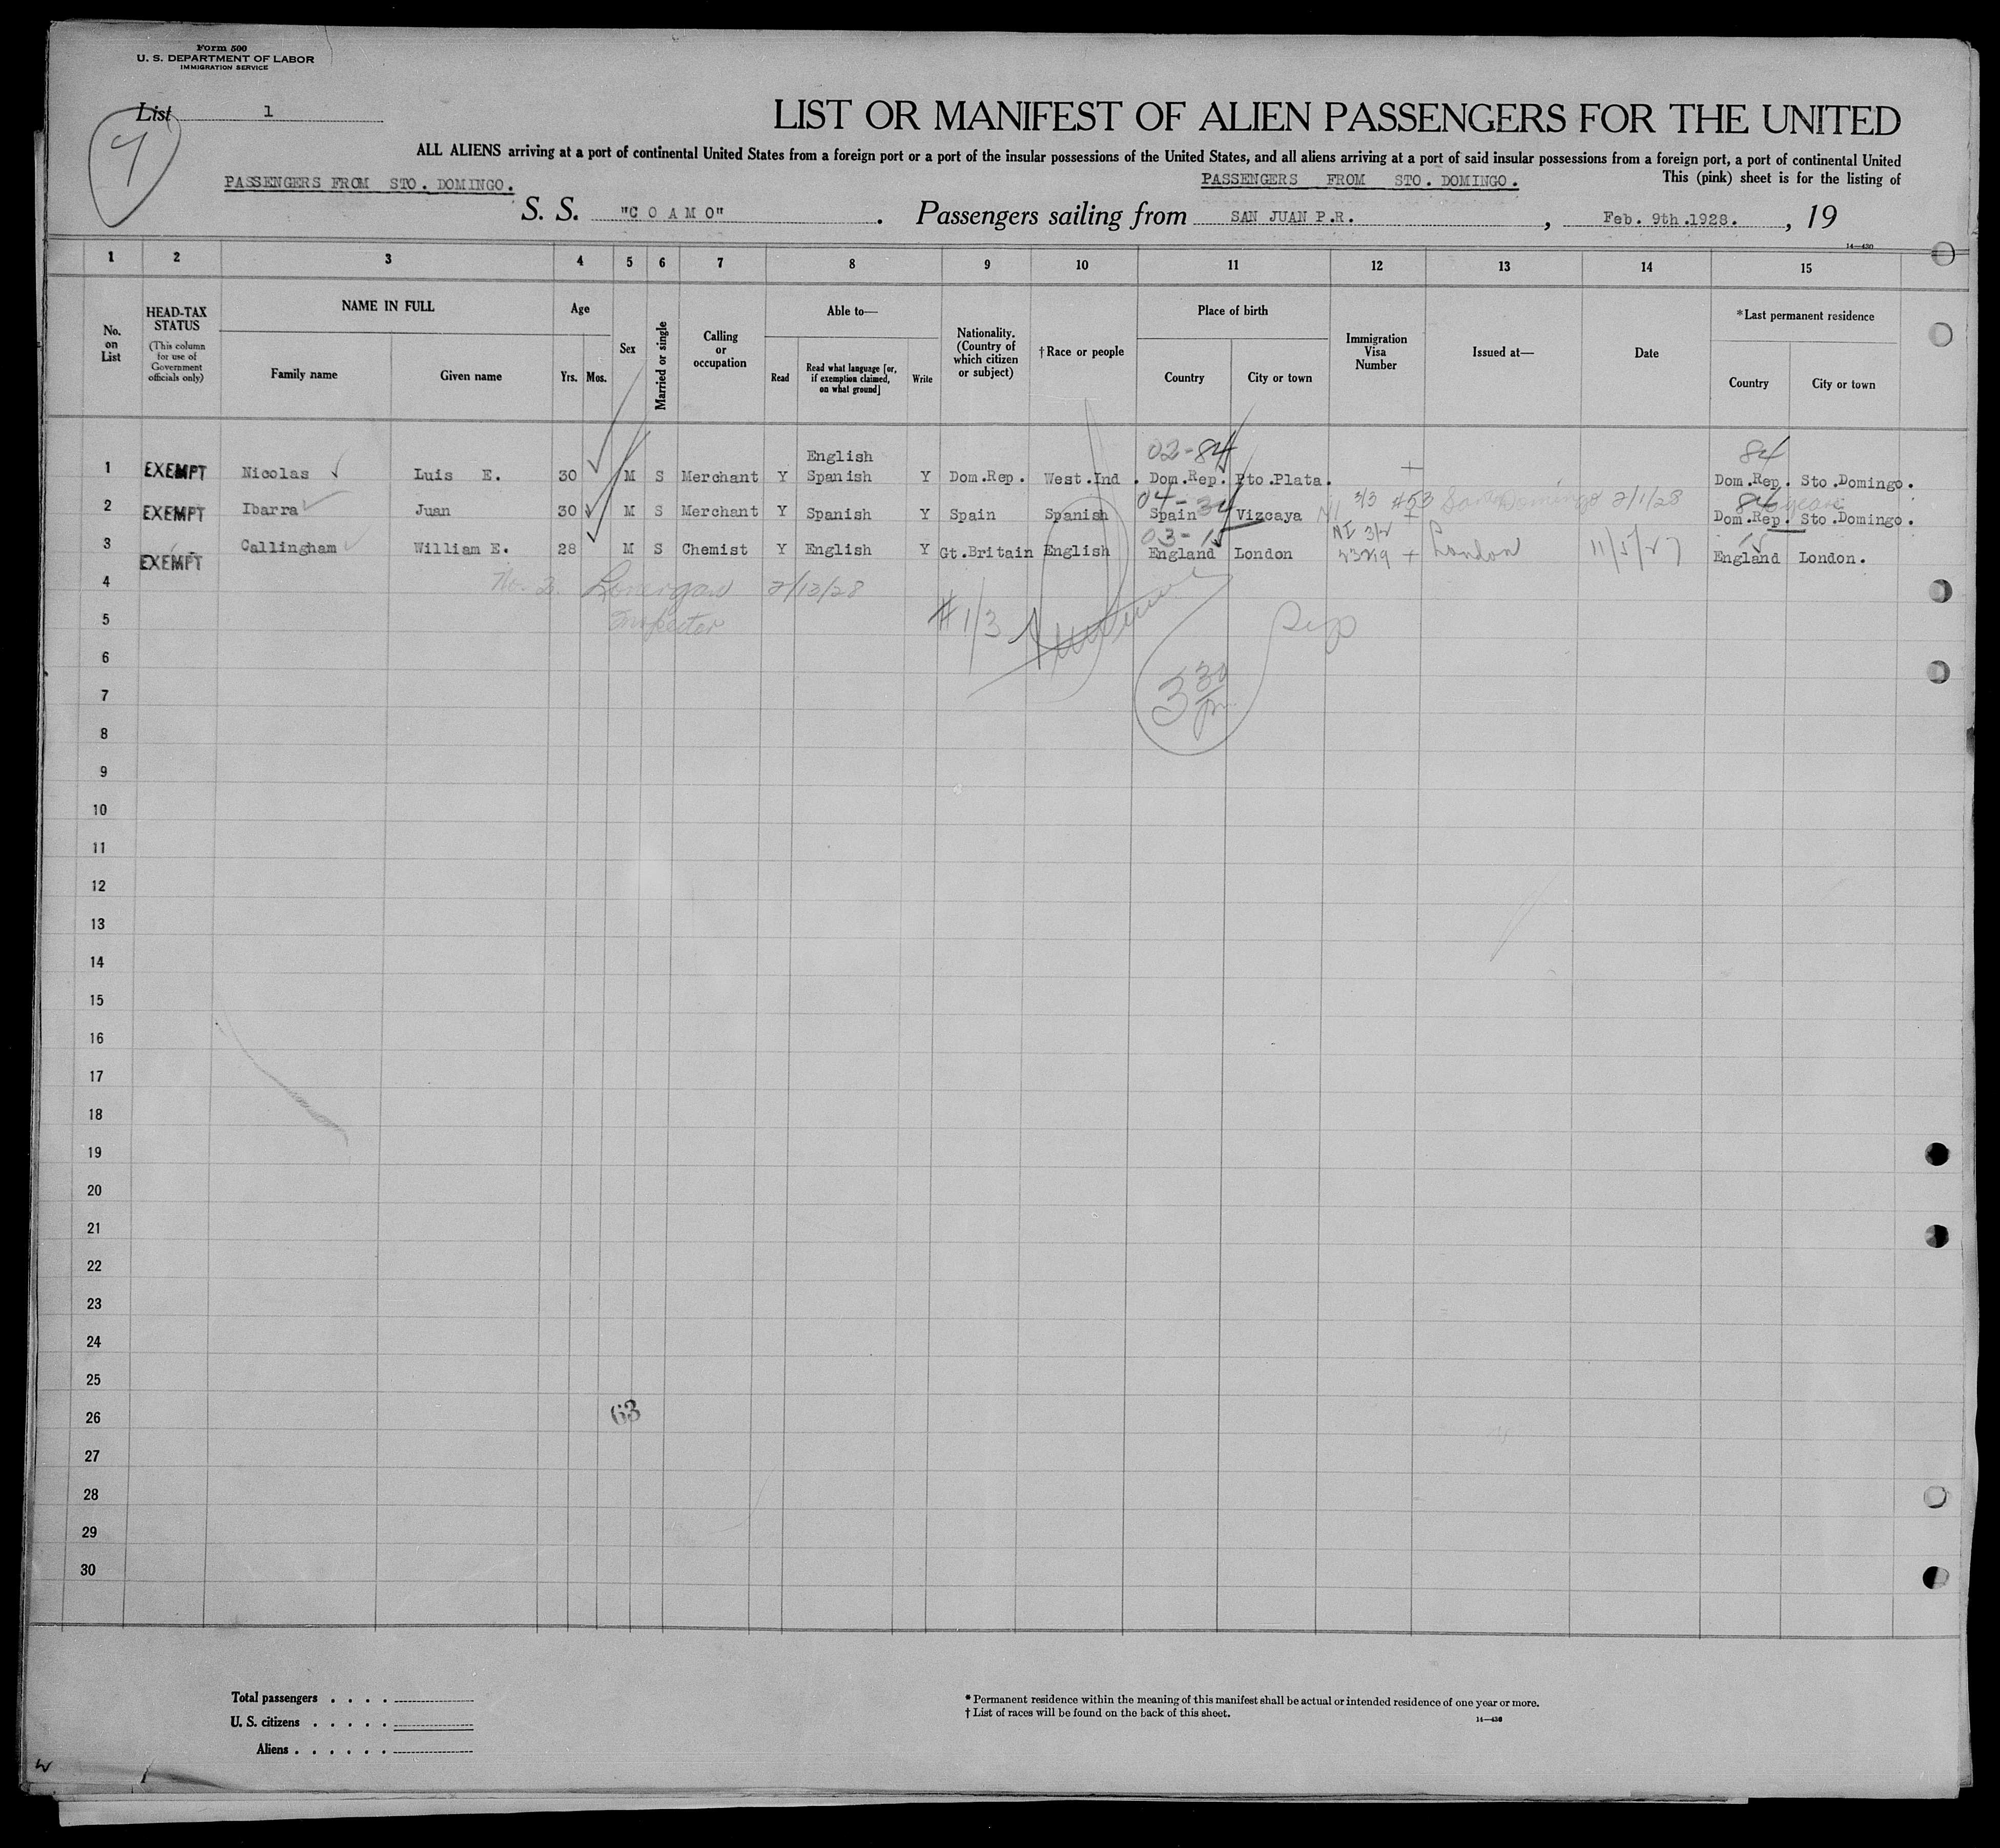 Form 500
U. S. DEPARTMENT OF LABOR
IMMIGRATION SERVICE
List 1
7
LIST OR MANIFEST OF ALIEN PASSENGERS FOR THE UNITED
ALL ALIENS arriving at a port of continental United States from a foreign port or a port of the insular possessions of the United States, and all aliens arriving at a port of said insular possessions from a foreign port, a port of continental United
PASSENGERS FROM STO. DOMINGO. PASSENGERS FROM STO. DOMINGO. This (pink) sheet is for the listing of
S. S. "C O A M O" . Passengers sailing from SAN JUAN P.R. , Feb. 9th.1928. , 19
14—430
1 2 3 4 5 6 7 8 9 10 11 12 13 14 15
No. on List
HEAD-TAX STATUS
(This column for use of Government officials only)
NAME IN FULL
Family name Given name
Age
Yrs. Mos.
Sex
Married or single
Calling or occupation
Able to—
Read
Read what language [or, if exemption claimed, on what ground]
Write
Nationality. (Country of which citizen or subject)
† Race or people
Place of birth
Country City or town
Immigration Visa Number
Issued at—
Date
* Last permanent residence
Country City or town
02-84 84
English
1 EXEMPT Nicolas Luis E. 30 M S Merchant Y Spanish Y Dom.Rep. West.Ind. Dom.Rep. Pto.Plata. Dom.Rep. Sto.Domingo.
04-34 84
2 EXEMPT Ibarra Juan 30 M S Merchant Y Spanish Y Spain Spanish Spain Vizcaya NI 3/3 #53 Santo Domingo 2/1/28 Dom.Rep. Sto.Domingo.
03-15 15
3 EXEMPT Callingham William E. 28 M S Chemist Y English Y Gt.Britain English England London NI 3/2 London 11/5/27 England London.
4 No. 2. Lonergan 2/12/28
5 Inspector #1/3
6
3 30 pm
7
8
9
10
11
12
13
14
15
16
17
18
19
20
21
22
23
24
25
26 63
27
28
29
30
Total passengers . . . .
U. S. citizens . . . . .
Aliens . . . . . .
* Permanent residence within the meaning of this manifest shall be actual or intended residence of one year or more.
† List of races will be found on the back of this sheet.
14—430